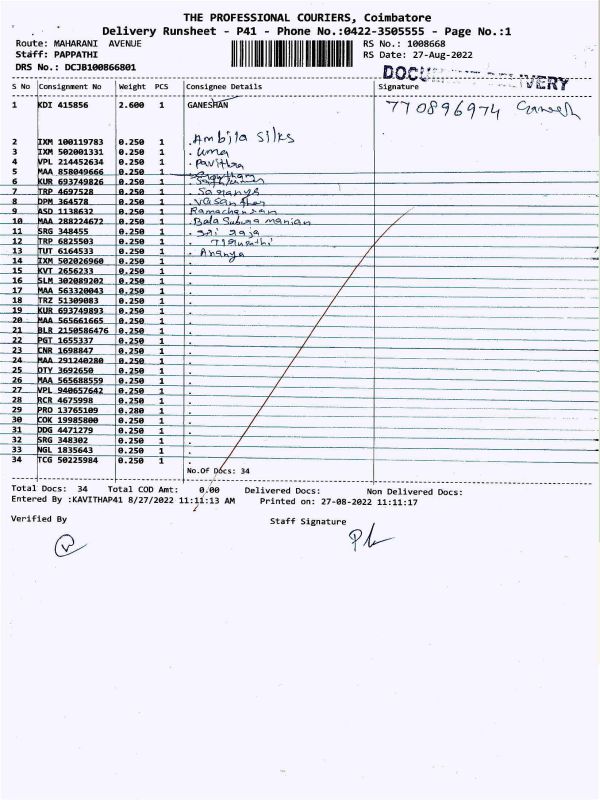 THE PROFESSIONAL COURIERS, Coimbatore
Delivery Runsheet - P41 - Phone No.:0422-3505555 - Page No.:1
Route: MAHARANI AVENUE RS No.: 1008668
Staff: PAPPATHI RS Date: 27-Aug-2022
DRS No.: DCJB100866801
DOCUMENT DELIVERY
S No Consignment No Weight PCS Consignee Details Signature
1 KDI 415856 2.600 1 GANESHAN 770896974 Ganesh
2 IXM 100119783 0.250 1 . Ambila Silks
3 IXM 502001331 0.250 1 . uma
4 VPL 214452634 0.250 1 . Pavithra
5 MAA 858049666 0.250 1 .
6 KUR 693749826 0.250 1 .
7 TRP 4697528 0.250 1 . Saranya
8 DPM 364578 0.250 1 . Vasanthan
9 ASD 1138632 0.250 1 Ramachandran
10 MAA 288224672 0.250 1 . Bala Subra manian
11 SRG 348455 0.250 1 . Sri raja
12 TRP 6825503 0.250 1 . Tirupathi
13 TUT 6164533 0.250 1 . Ananya
14 IXM 502026960 0.250 1 .
15 KVT 2656233 0.250 1 .
16 SLM 302089202 0.250 1 .
17 MAA 563320043 0.250 1 .
18 TRZ 51309083 0.250 1 .
19 KUR 693749893 0.250 1 .
20 MAA 565661665 0.250 1 .
21 BLR 2150586476 0.250 1 .
22 PGT 1655337 0.250 1 .
23 CNR 1698847 0.250 1 .
24 MAA 291240280 0.250 1 .
25 DTY 3692650 0.250 1 .
26 MAA 565688559 0.250 1 .
27 VPL 940657642 0.250 1 .
28 RCR 4675998 0.250 1 .
29 PRO 13765109 0.280 1 .
30 COK 19985800 0.250 1 .
31 DDG 4471279 0.250 1 .
32 SRG 348302 0.250 1 .
33 NGL 1835643 0.250 1 .
34 TCG 50225984 0.250 1 .
No.Of Docs: 34
Total Docs: 34 Total COD Amt: 0.00 Delivered Docs: Non Delivered Docs:
Entered By :KAVITHAP41 8/27/2022 11:11:13 AM Printed on: 27-08-2022 11:11:17
Verified By Staff Signature